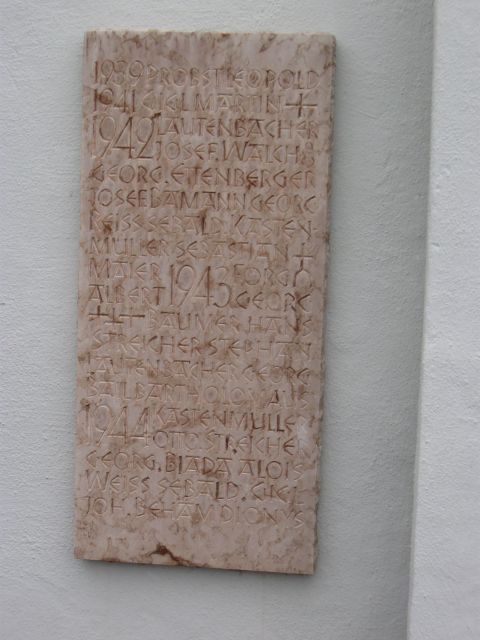 1939 PROBST LEOPOLD
1941 GIGL MARTIN ++
1942 LAUTENBACHER
JOSEF. WALCH 8
GEORG. ETENBERGER
JOSEF BAMANN GEORG
REISS SEBALD. KASTEN-
MÜLLER SEBASTIAN +
MAIER 1943 FORG
ALBERT GEORG
+++ BAUMER HANS
STREICHER STEPHAN
LAUTENBACHER GEORG
BAIL BARTHOLOMAUS
1944 KASTENMULLER
OTTO. STREICHER
GEORG. BIADA ALOIS
WEISS SEBALD. GIGL
JOH. BEHAM DIONYS